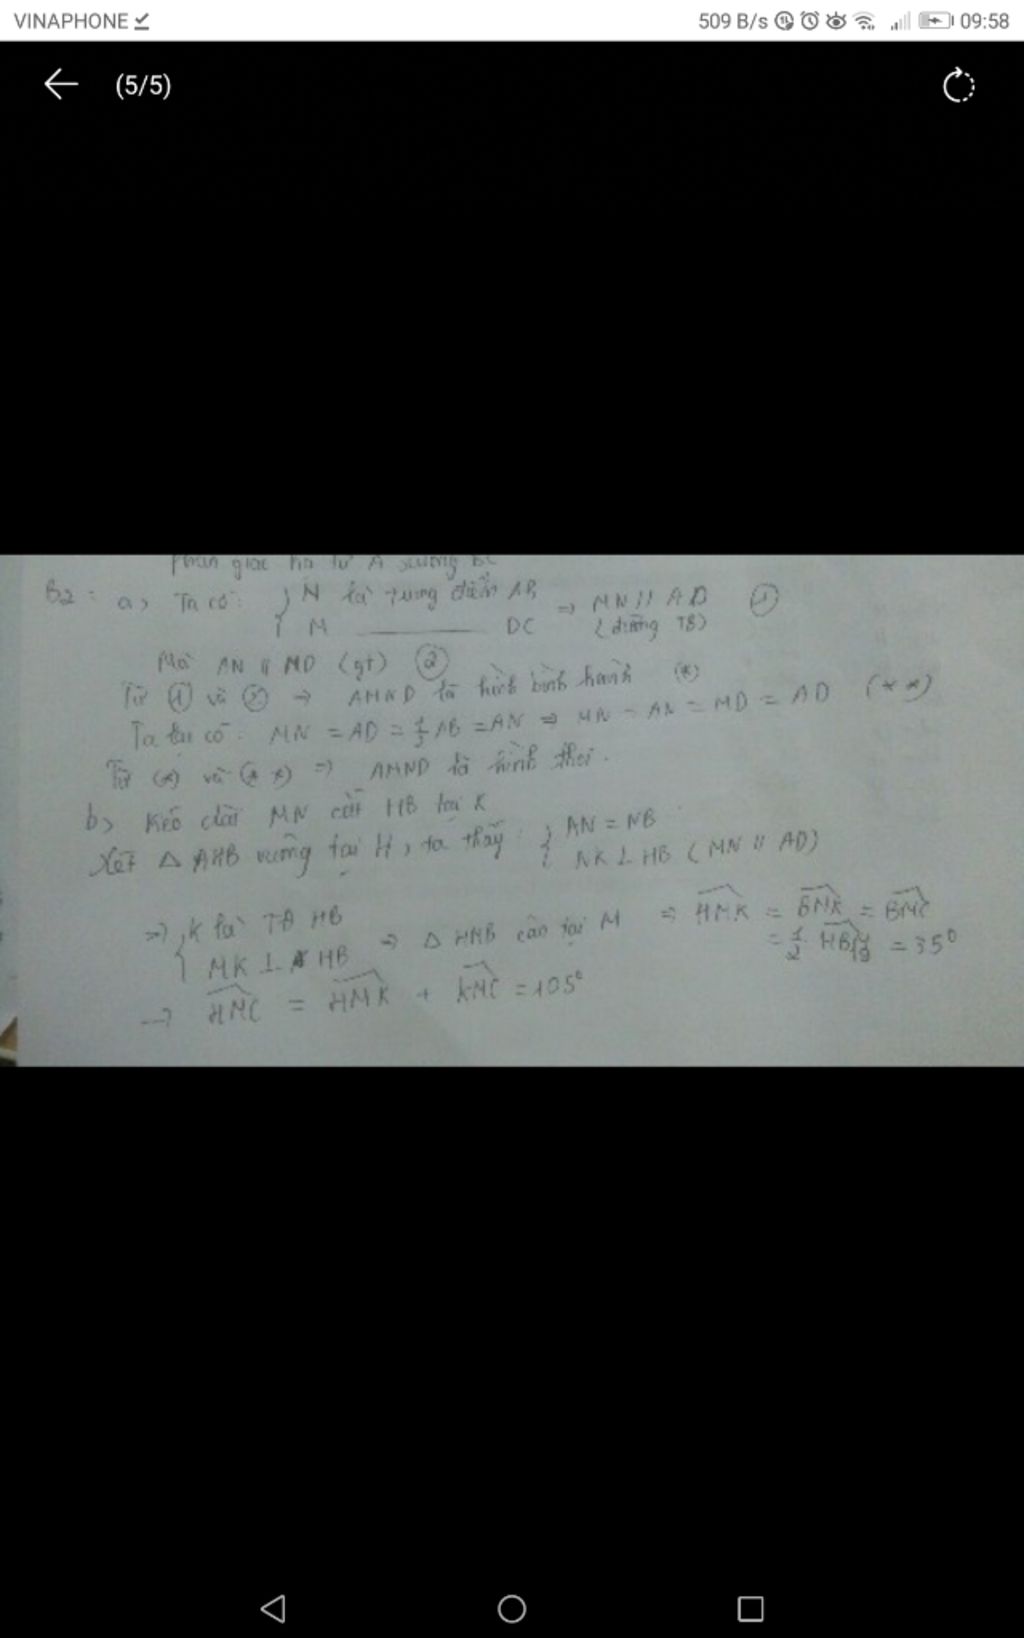 VINAPHONE
509 B/s 09:58
(5/5)
phân giác hạ từ A xuống BC
B2: a, Ta có: { N là trung điểm AB
M ——— DC => MN // AD (đường TB) ①
Mà AN // MD (gt) ②
Từ ① và ② => AMND là hình bình hành (*)
Ta lại có: MN = AD = 1/2 AB = AN => MN = AN = MD = AD (**)
Từ (*) và (**) => AMND là hình thoi.
b, Kéo dài MN cắt HB tại K
Xét △ AHB vuông tại H, ta thấy: { AN = NB
NK ⊥ HB (MN // AD)
=> { K là TĐ HB
MK ⊥ HB => △ HMB cân tại M => HMK = BMK = BMC
= 1/2 = 35°
=> HMC = HMK + KMC = 105°